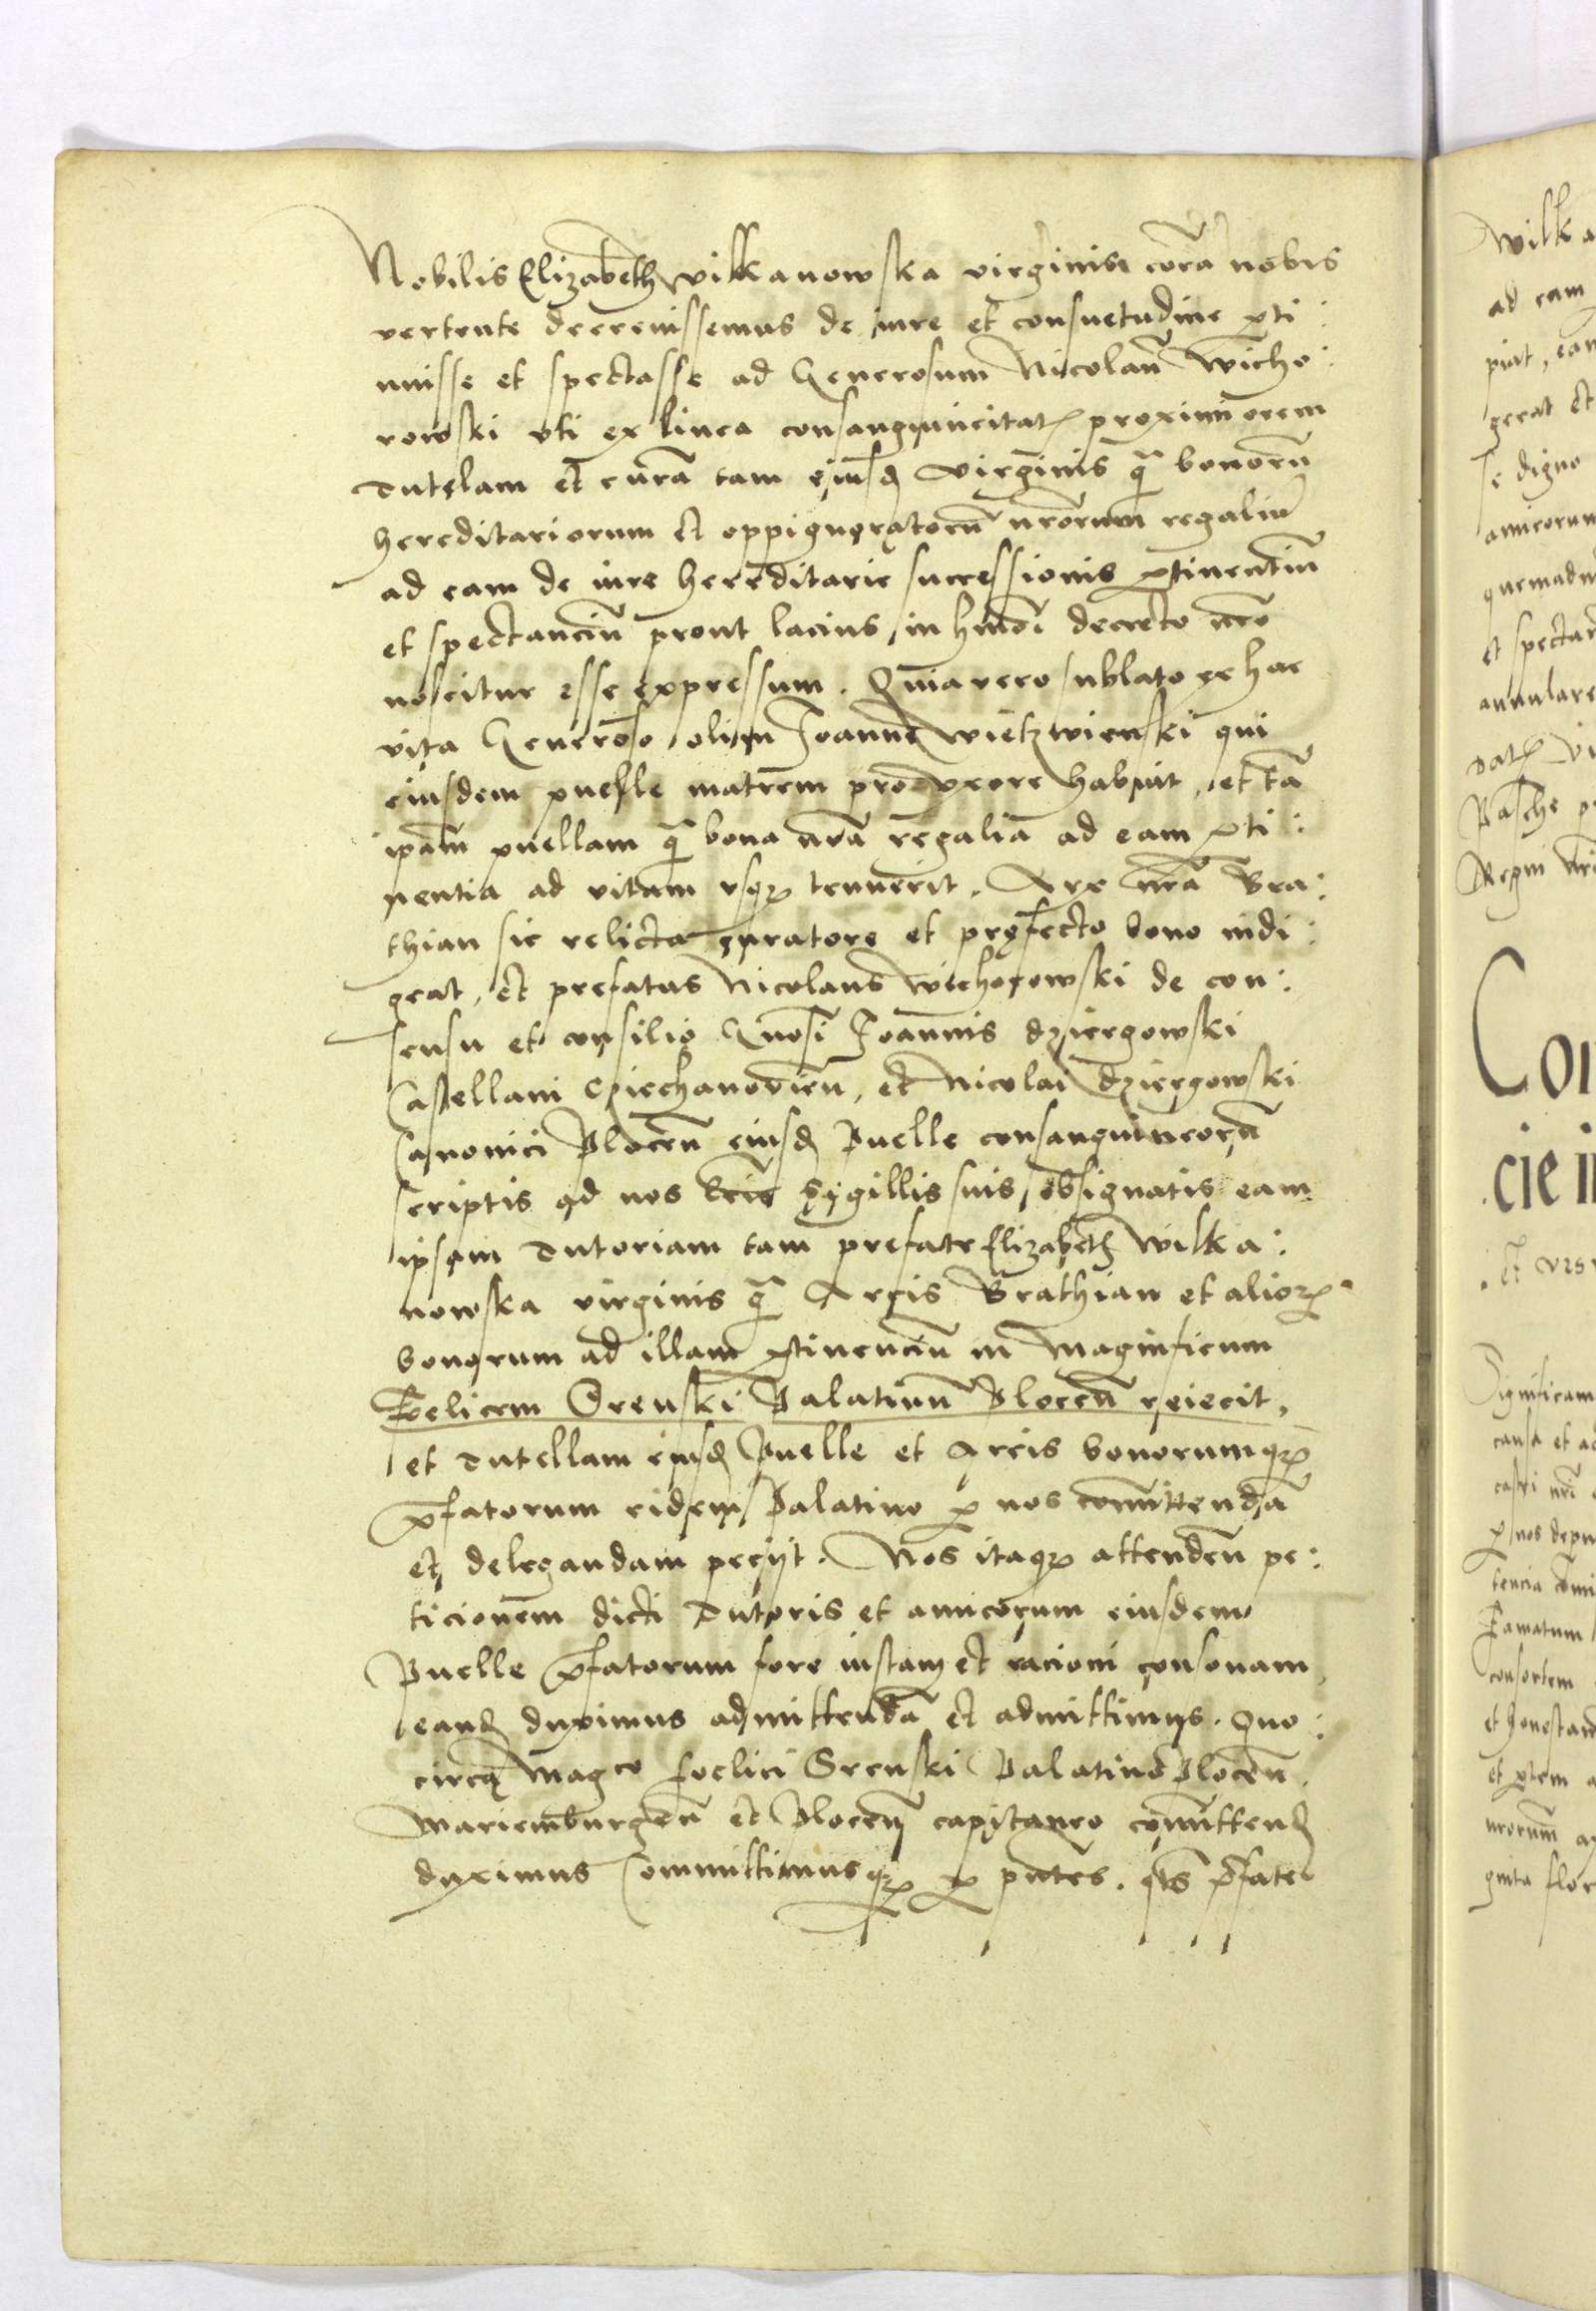 Nobilis Elizabeth Wilkanowska virginis corā nobis
vertente decrevissemus de iure et consuetudine ꝑti:
nuisse et spectasse ad Generosum Nicolaū Wicho:
rowski vti ex linea consanguineitatꝭ proximiorem
Tutelam et curā tam eiusd virginis q̄ bonorū
hereditariorum et oppignoratorū nr̄orum regaliū
ad eam de iure hereditarie successionis ꝑtinentiū
et spectanciū prout lacius in hmōi decreto nr̄o
noscitur esse expressum. Quia vero sublato ex hac
vita Generoso olim Joanne Wietzwienski qui
eiusdem puelle matrem pro vxore habuit, et tā
ip̄am puellam q̄ bona nr̄a regalia ad eam ꝑti:
nentia ad vitam vsqꝫ tenuerit. Arx nr̄a Bra:
thian sic relicta curatore et prefecto bono indi:
geat, et prefatus Nicolaus Wichorowski de con:
sensu et consilio Gnosi Joannis dziergowski
Castellani Cziechanovień, et Nicolai Dziergowski
Canonici Plocen̄ eiusd Puelle consanguineorū
scriptis ad nos lr̄is Sygillis suis obsignatis eam
ipsam Tutoriam tam prefate Elizabeth Wilka:
nowska virginis q̄ Arcis Brathian et alioꝝ
bonorum ad illam ꝑtinenciū in Magnificum
Felicem Srenski Palatinū Plocen̄ reiecit,
et Tutellam eiusd Puelle et Arcis bonorumqꝫ
p̄fatorum eidem Palatino ꝑ nos committendā
et delegandam peciit. Nos itaqꝫ attenden̄ pe:
ticionem dicti Tutoris et amicorum eiusdem
Puelle p̄fatorum fore iustam et racioni consonam,
eand duximus admittendā et admittimus. Quo:
circa Magco Foelici Srenski Palatino Plocen̄.
Mariemburgen̄ et Plocen̄ capitaneo committend
duximus Committimusqꝫ ꝑ pn̄tes. qts p̄fate